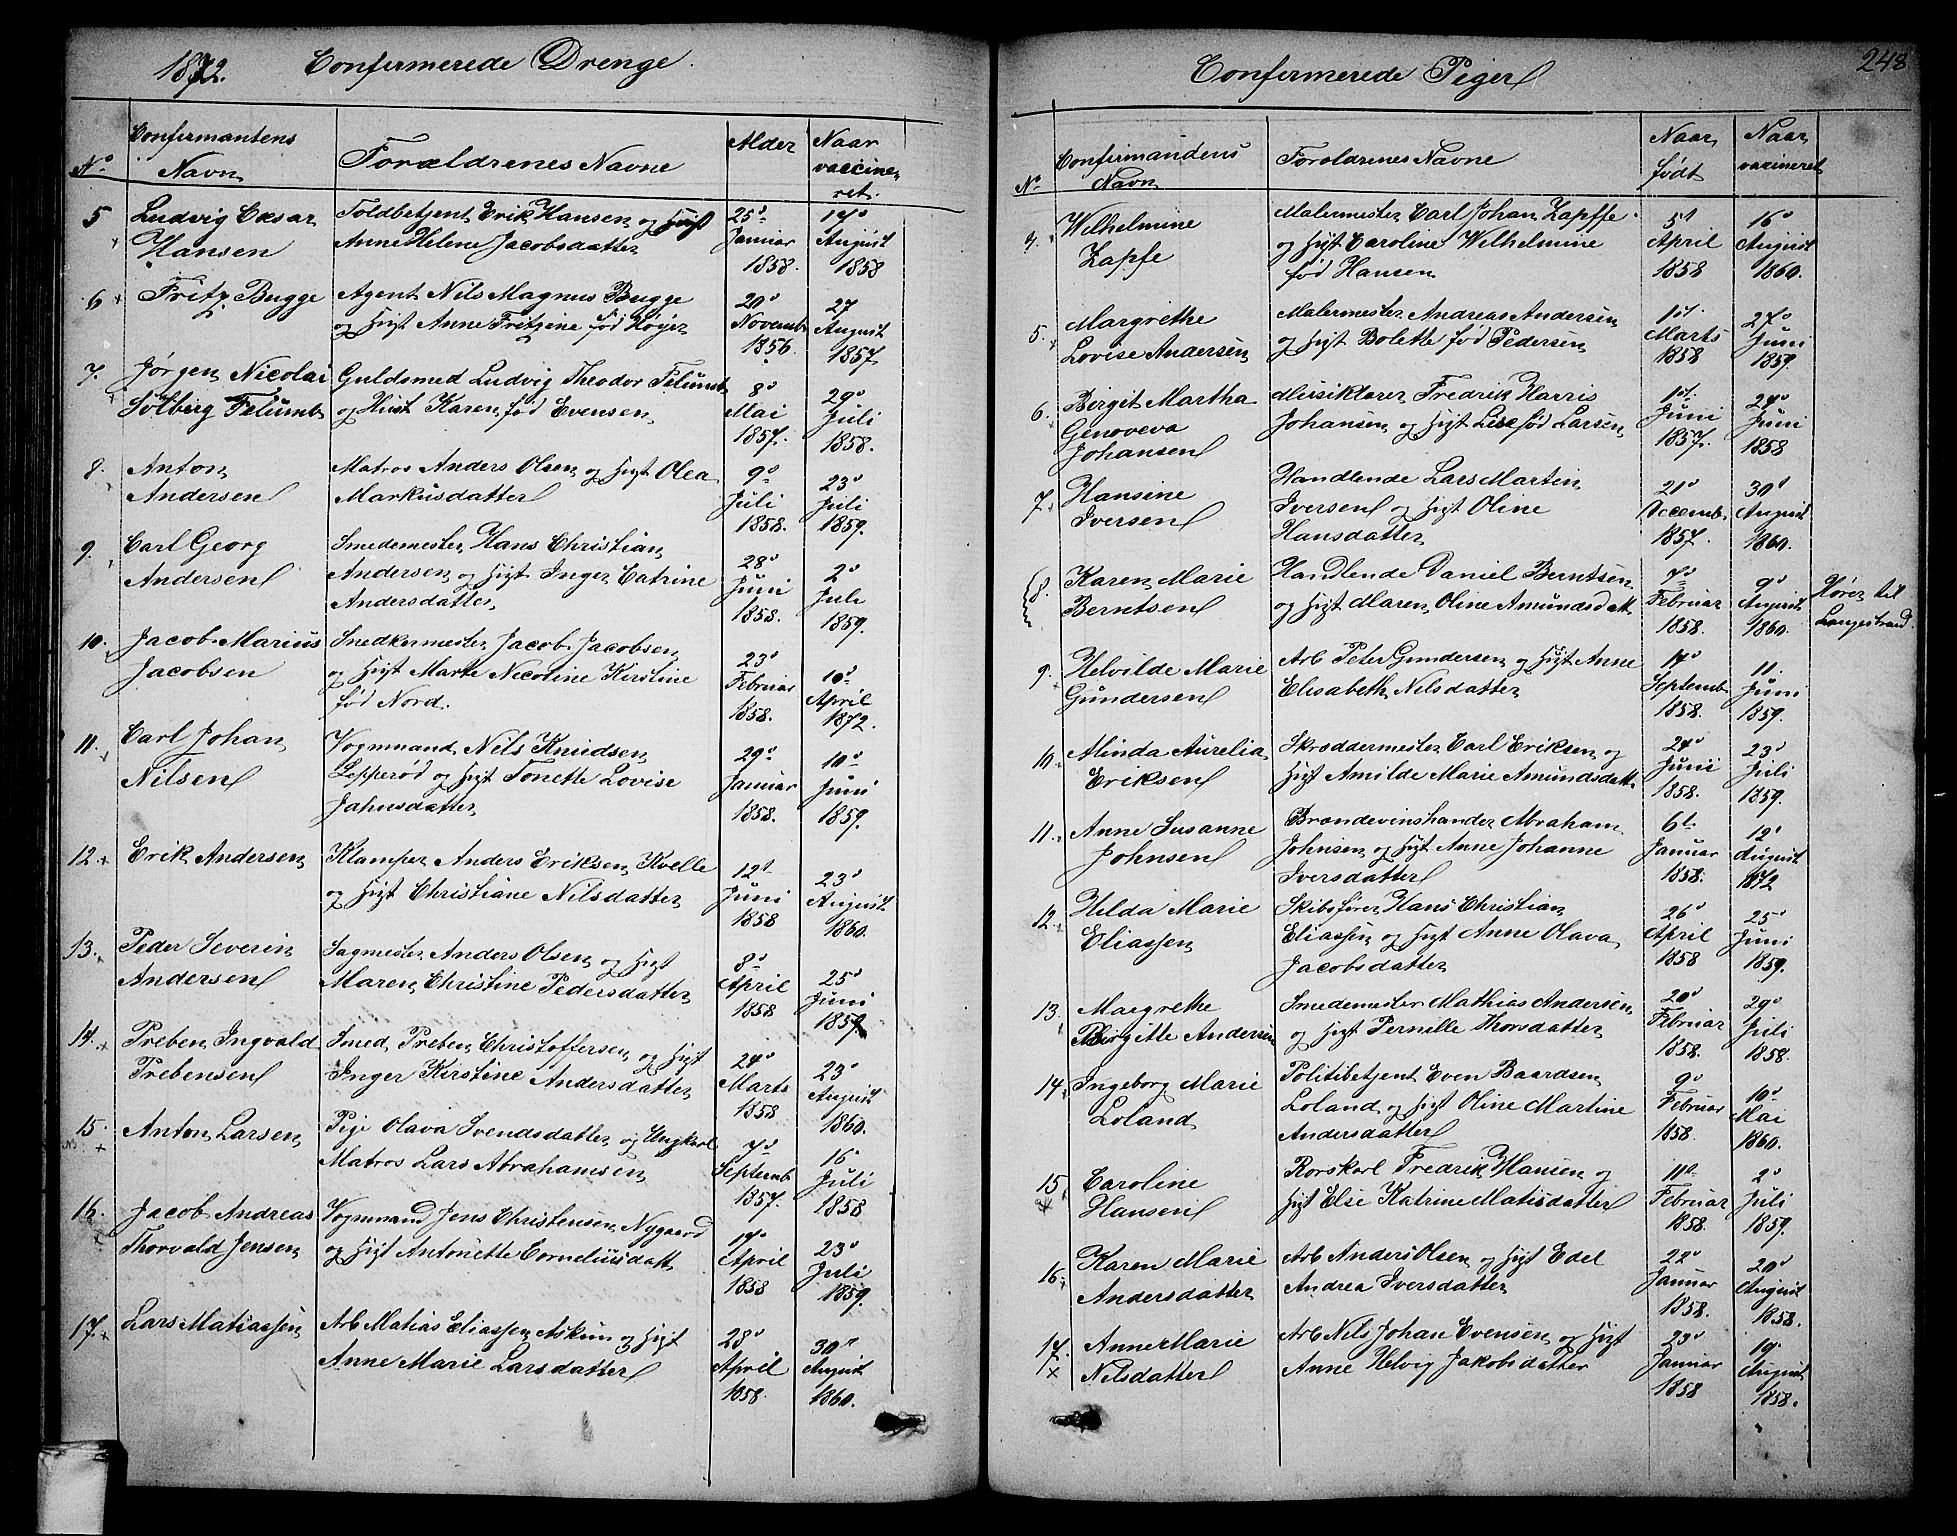 1872. Confirmerede Drenge.
No
Confirmantens
Navn
Forældrenes Navne
Alder
Naar
vaccine-
ret.
5
Ludvig Cæsar
Hansen
Toldbetjent Erik Hansen og Hust
Anne Helene Jacobsdatter
25d
Januar
1858.
14d
August
1858
6
Fritz Bugge
Agent Nils Magnus Bugge
og Hust Anne Fritzine fød Høyer
20d
Novemb
1856.
27
August
1857.
7.
Jørgen Nicolai
Solberg Felumb
Guldsmed Ludvig Theodor Felumb
og Hust Karen fød Evensen
8d
Mai
1857.
29d
Juli
1858.
8.
Anton
Andersen
Matros Anders Olsen og Hust Olea
Markusdatter
9d
Juli
1858.
23d
Juli
1859.
9.
Carl Georg
Andersen
Smedemester Hans Christian
Andersen og Hust Inger Catrine
Andersdatter
28d
Juni
1858.
2d
Juli
1859.
10.
Jacob Marius
Jacobsen
Snedkermester Jacob Jacobsen
og Hust Marte Nicoline Kirstine
fød Nord.
23d
Februar
1858.
10d
April
1872.
11.
Carl Johan
Nilsen
Vognmand Nils Knudsen
Lepperød og Hust Tonette Lovise
Jahnsdatter
29d
Januar
1858.
10d
Juni
1859.
12.
Erik Andersen
Klamper Anders Eriksen Kvelle
og Hust Christiane Nilsdatter
12t
Juni
1858
23d
August
1860.
13.
Peder Severin
Andersen
Sagmester Anders Olsen og Hust
Maren Christine Pedersdatter
8d
April
1858
25d
Juni
1859
14.
Preben Ingvald
Prebensen
Smed Preben Christoffersen og Hust
Inger Kirstine Andersdatter
24d
Marts
1858
23d
August
1860.
15.
Anton Larsen
Pige Olava Svendsdatter og Ungkarl
Matros Lars Abrahamsen
7d
Septemb
1857.
16
Juli
1858
16.
Jacob Andreas
Thorvald Jensen
Vognmand Jens Christensen Nygaard
og Hust Antonette Corneliusdatt
14d
April
1858
23d
Juli
1859.
17.
Lars Matiassen
Arb Matias Eliassen Askum og Hust
Anne Marie Larsdatter
28d
April
1858.
30d
August
1860.
Confirmerede Piger
248
No
Confirmandens
Navn
Foroldrenes Navne
Naar
født
Naar
vaccineret
4.
Wilhelmine
Zapfe
Malermester Carl Johan Zapffe
og Hust Caroline Wilhelmine
fød Hansen
5t
April
1858
16d
August
1860.
5.
Margrethe
Lovise Andersen
Malermester Andreas Andersen
og Hust Bolette fød Pedersen
1st.
Marts
1858
27d
Juni
1859.
6.
Birgit Martha
Genoveva
Johansen
Musiklærer Fredrik Harris
Johansen og Hust Lise fød Larsen
1st.
Juni
1857.
24d
Juni
1858
7.
Hansine
Iversen
Handlende Lars Martin
Iversen og Hust Oline
Hansdatter
21d
Decemb
1857.
30d
August
1860.
8.
Karen Marie
Berntsen
Handlende Daniel Berntsen
og Hust Maren Oline Amundsdatt.
7d
Februar
1858.
9d
August
1860.
Hører til
Langestrand.
9.
Helvilde Marie
Gundersen
Arb Peter Gundersen og Hust Anne
Elisabeth Nilsdatter
14d
Septemb
1858.
11.
Juni
1859.
10.
Alinda Aurelia
Eriksen
Skræddermester Carl Eriksen og
Hust Amilde Marie Amundsdatt.
24d
Juni
1858.
23d
Juli
1859.
11.
Anne Susanne
Johnsen
Brændevinshander Abraham
Johnsen og Hust Anne Johanne
Iversdatter
6t
Januar
1858.
19d
August
1872
12.
Hilda Marie
Eliassen
Skibsfører Hans Christian
Eliassen og Hust Anne Olava
Jacobsdatter
26d
April
1858
25d
Juni
1859.
13.
Margrethe
Birgitte Andersen
Smedemester Mathias Andersen
og Hust Pernelle Thorsdatter
20d
Februar
1858.
29d
Juli
1858.
14.
Ingeborg Marie
Loland
Politibetjent Even Baardsen
Loland og Hust Oline Martine
Andersdatter
9d
Februar
1858.
10d
Mai
1860.
15.
Caroline
Hansen
Rorskarl Fredrik Hansen og
Hust Else Katrine Matisdatter
11t
Februar
1858.
2d
Juli
1859.
16.
Karen Marie
Andersdatter
Arb Anders Olsen og Hust Edel
Andrea Iversdatter
22d
Januar
1858.
20d
August
1858.
17.
Anne Marie
Nilsdatter
Arb Nils Johan Evensen og Hust
Anne Helvig Jakobsdatter
23d
Januar
1858
19d
August
1858.